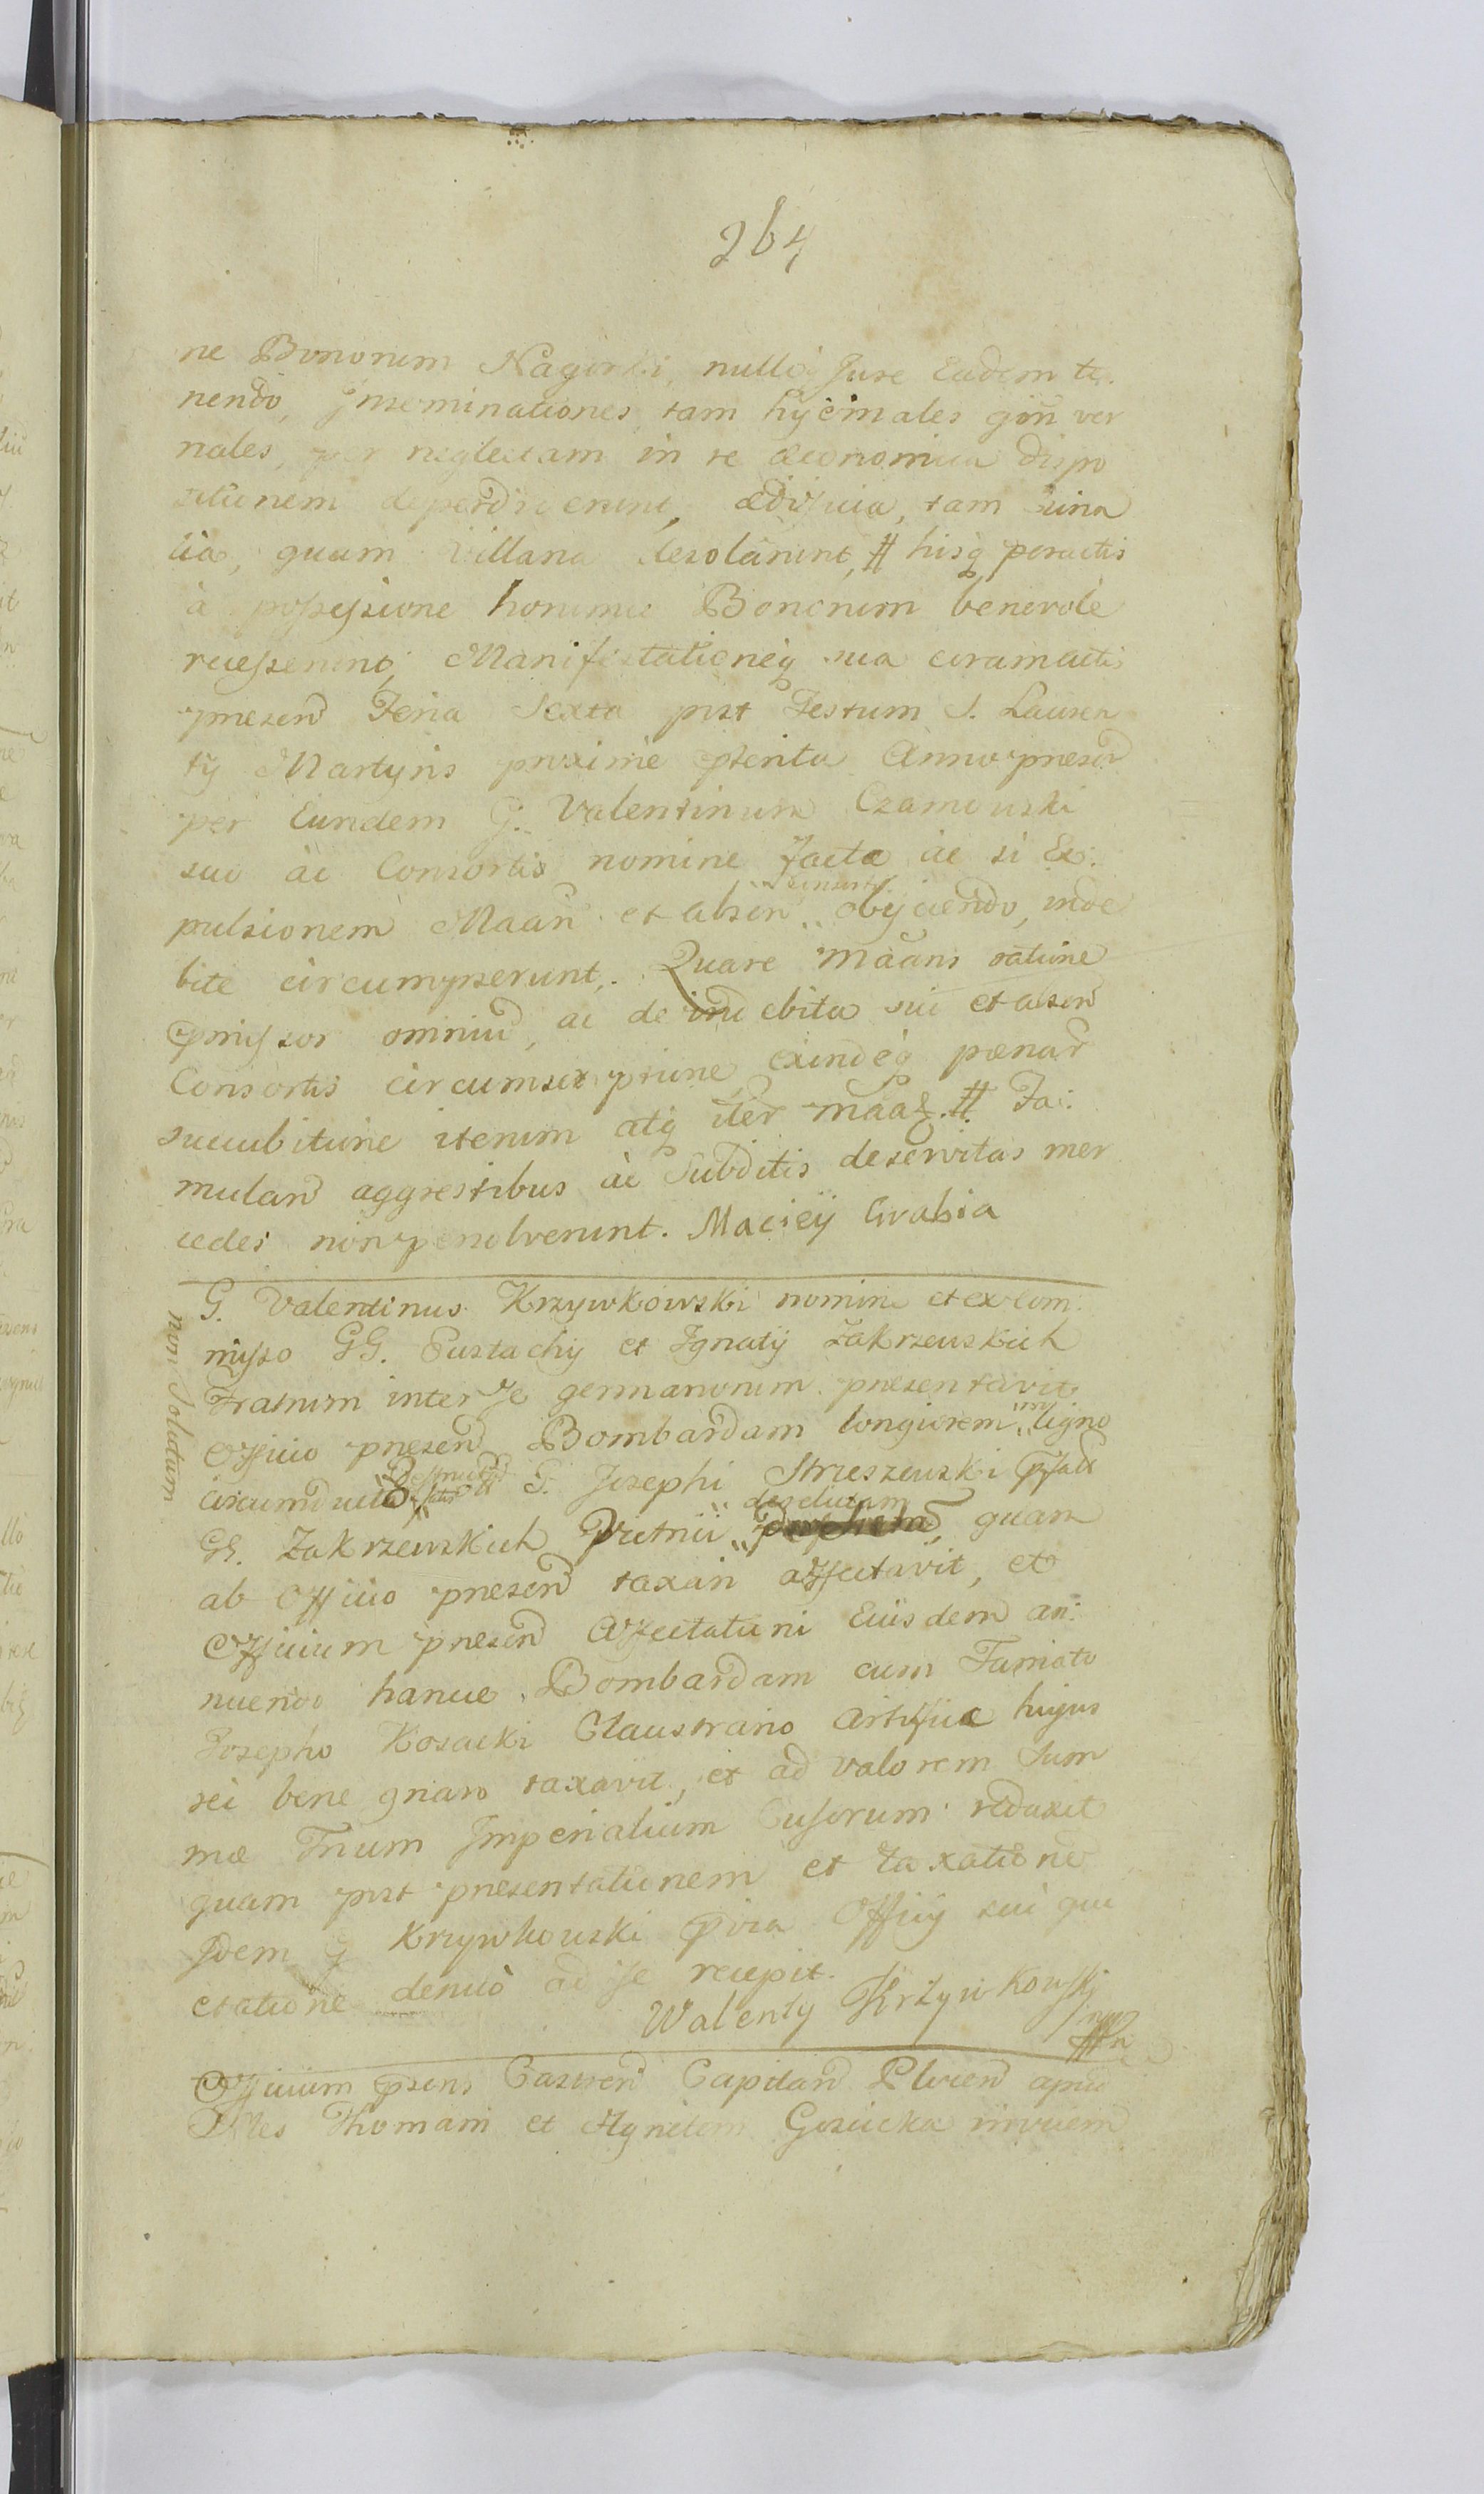 264
ne Bonorum Nagorki, nulloq Jure Eadem te
nendo, Inseminationes tam hyemales qm̃ ver
nales, per neglectam in re œconomica dispo
sitionem deperdiderunt, ædificia, tam
lia, quam Villana desolarunt, # hisq peractis
à possessione horumce Bonorum benevolè
recesserunt, Manifestationeq sua coram actis
presen Feria Sexta post Festum S. Lauren
tÿ Martyris proxime pterita Anno presen
per Eundem G. Valentinum Czarnowski
suo ac Consortis nomine facta ac si Ex:
pulsionem Maañ et absen obÿciendo, inde
bite circumpserunt. Quare maans ratione
pmissor omniu, ac de indebita sui et absen
Consortis circumscriptione exindeq pœnar
succubitione iterum atq iter maaʒ. # Fa:
mulan aggrestibus ac Subditis deservitas mer
cedes non persolverunt. Macieÿ Grabia
G. Valentinus Krzywkowski nomine et ex Com:
misso GG. Eustachÿ et Ignatÿ Zakrzewskich
Fratrum inter se germanorum presentavit
Officio presen Bombardam longiorem ligno
circumduct G. Josephi Strzeszewski pfati
GG. Zakrzewskich derelictam quam
ab Officio presen taxari affectavit, et
Officium presen Affectationi Eiusdem an:
nuendo hance Bombardam cum Famato
Josepho Kosacki Claustrario Artifice hujus
rei bene gnaro taxavit, et ad valorem Sum
mæ Trium Imperialium Cusorum reduxit
quam post presentationem et taxatione
Idem G Krzywkowski pvia Officÿ sui qui
etatione denuò ad se recepit.
Walenty Krzywkowski
mpp
non Solutum
Officium psens Castren Capitan Plocen apud
Thomam et Agnetem Gosicka